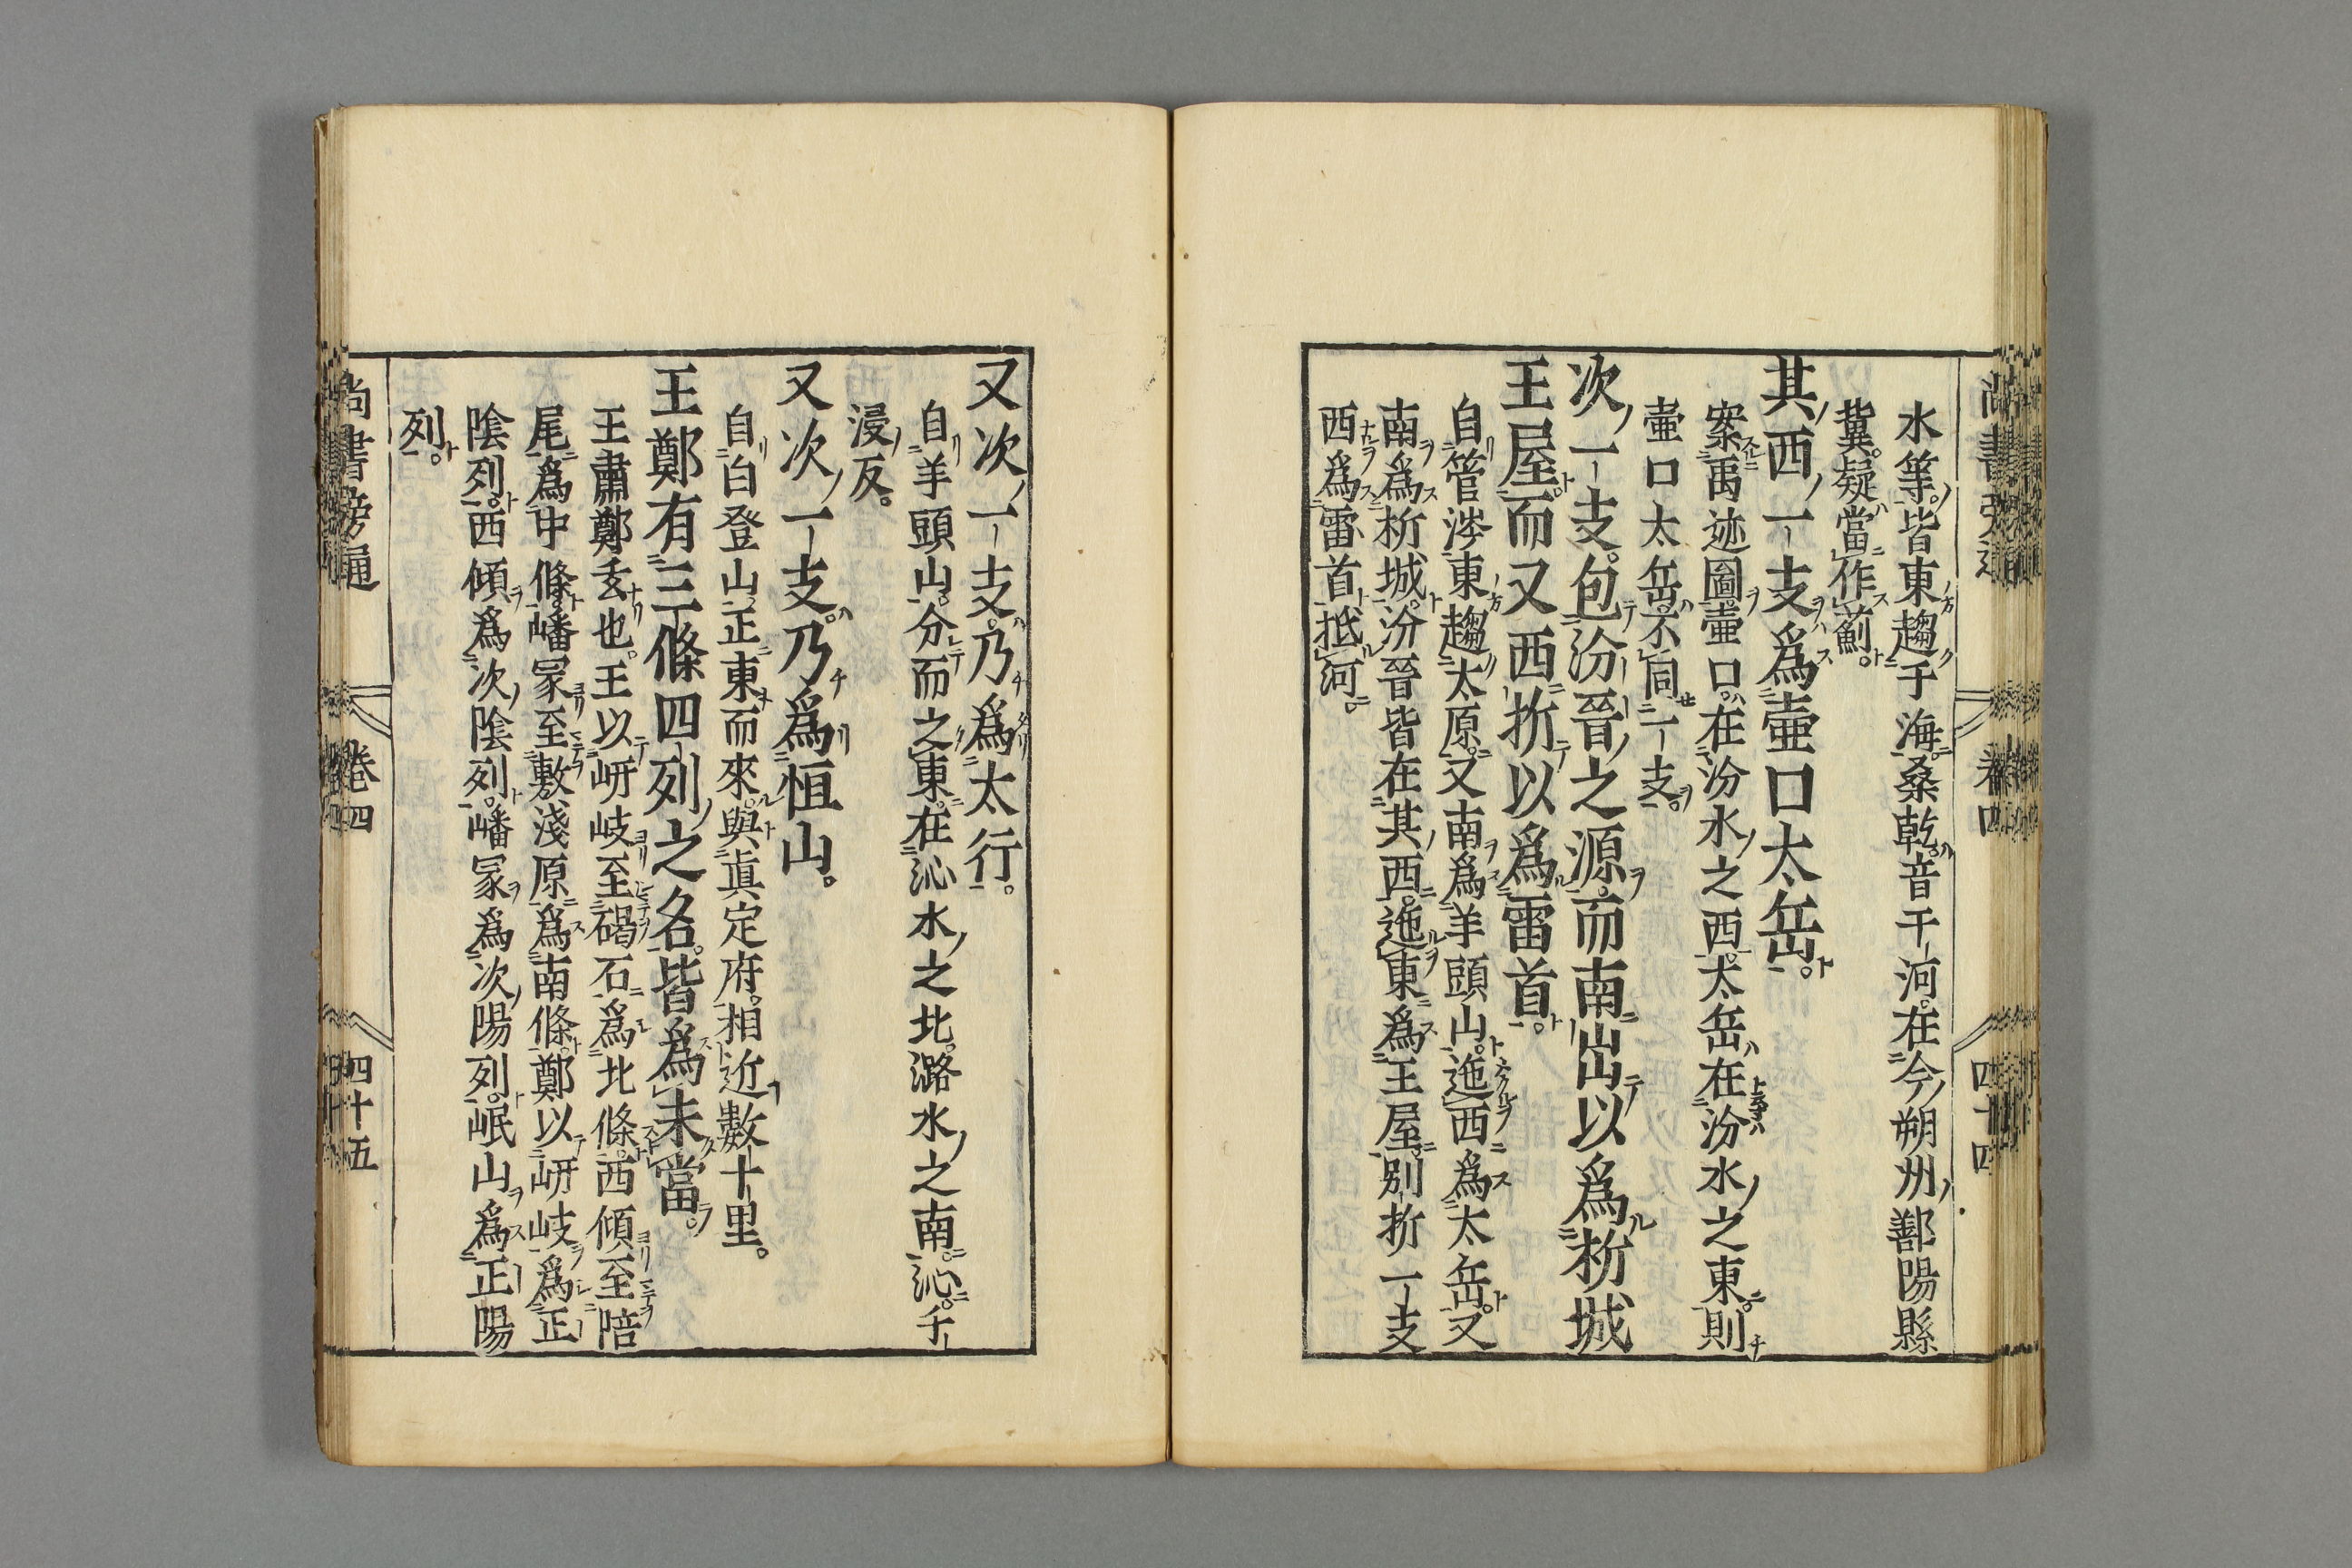 水等皆東趨于海。桑乾音干河。在今朔州鄯陽縣
冀。疑當作薊。
其西一支爲壷口太岳。
案禹迹圖壷口在汾水之西。太岳在汾水之東。則
壷口太岳不同一支。
次一支。包汾晉之源。而南出以爲析城
王屋。而又西折以爲雷首。
自管涔東趨太原。又南爲羊頭山。迤西爲太岳。又
南爲析城。汾晉皆在其西。迤東爲王屋。別折一支
西爲雷首抵河。
又次一支。乃爲太行。
自羊頭山。分而之東。在沁水之北。潞水之南。沁。千
浸反。
又次一支。乃爲恒山。
自白登山正東而來。與眞定府。相近數十里。
王鄭有三條四列之名。皆爲未當。
王肅鄭玄也。王以岍岐至碣石爲北條。西傾至陪
尾爲中條。嶓冢至敷淺原爲南條。鄭以岍岐爲正
陰列。西傾爲次陰列。嶓冢爲次陽列。岷山爲正陽
列。
尚書旁通 卷四 四十五